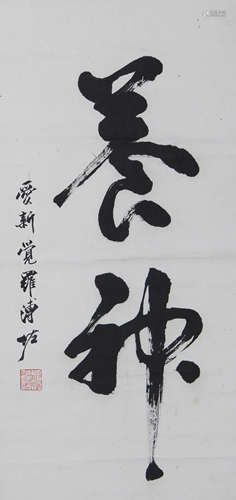 養神
愛新覺羅溥佐